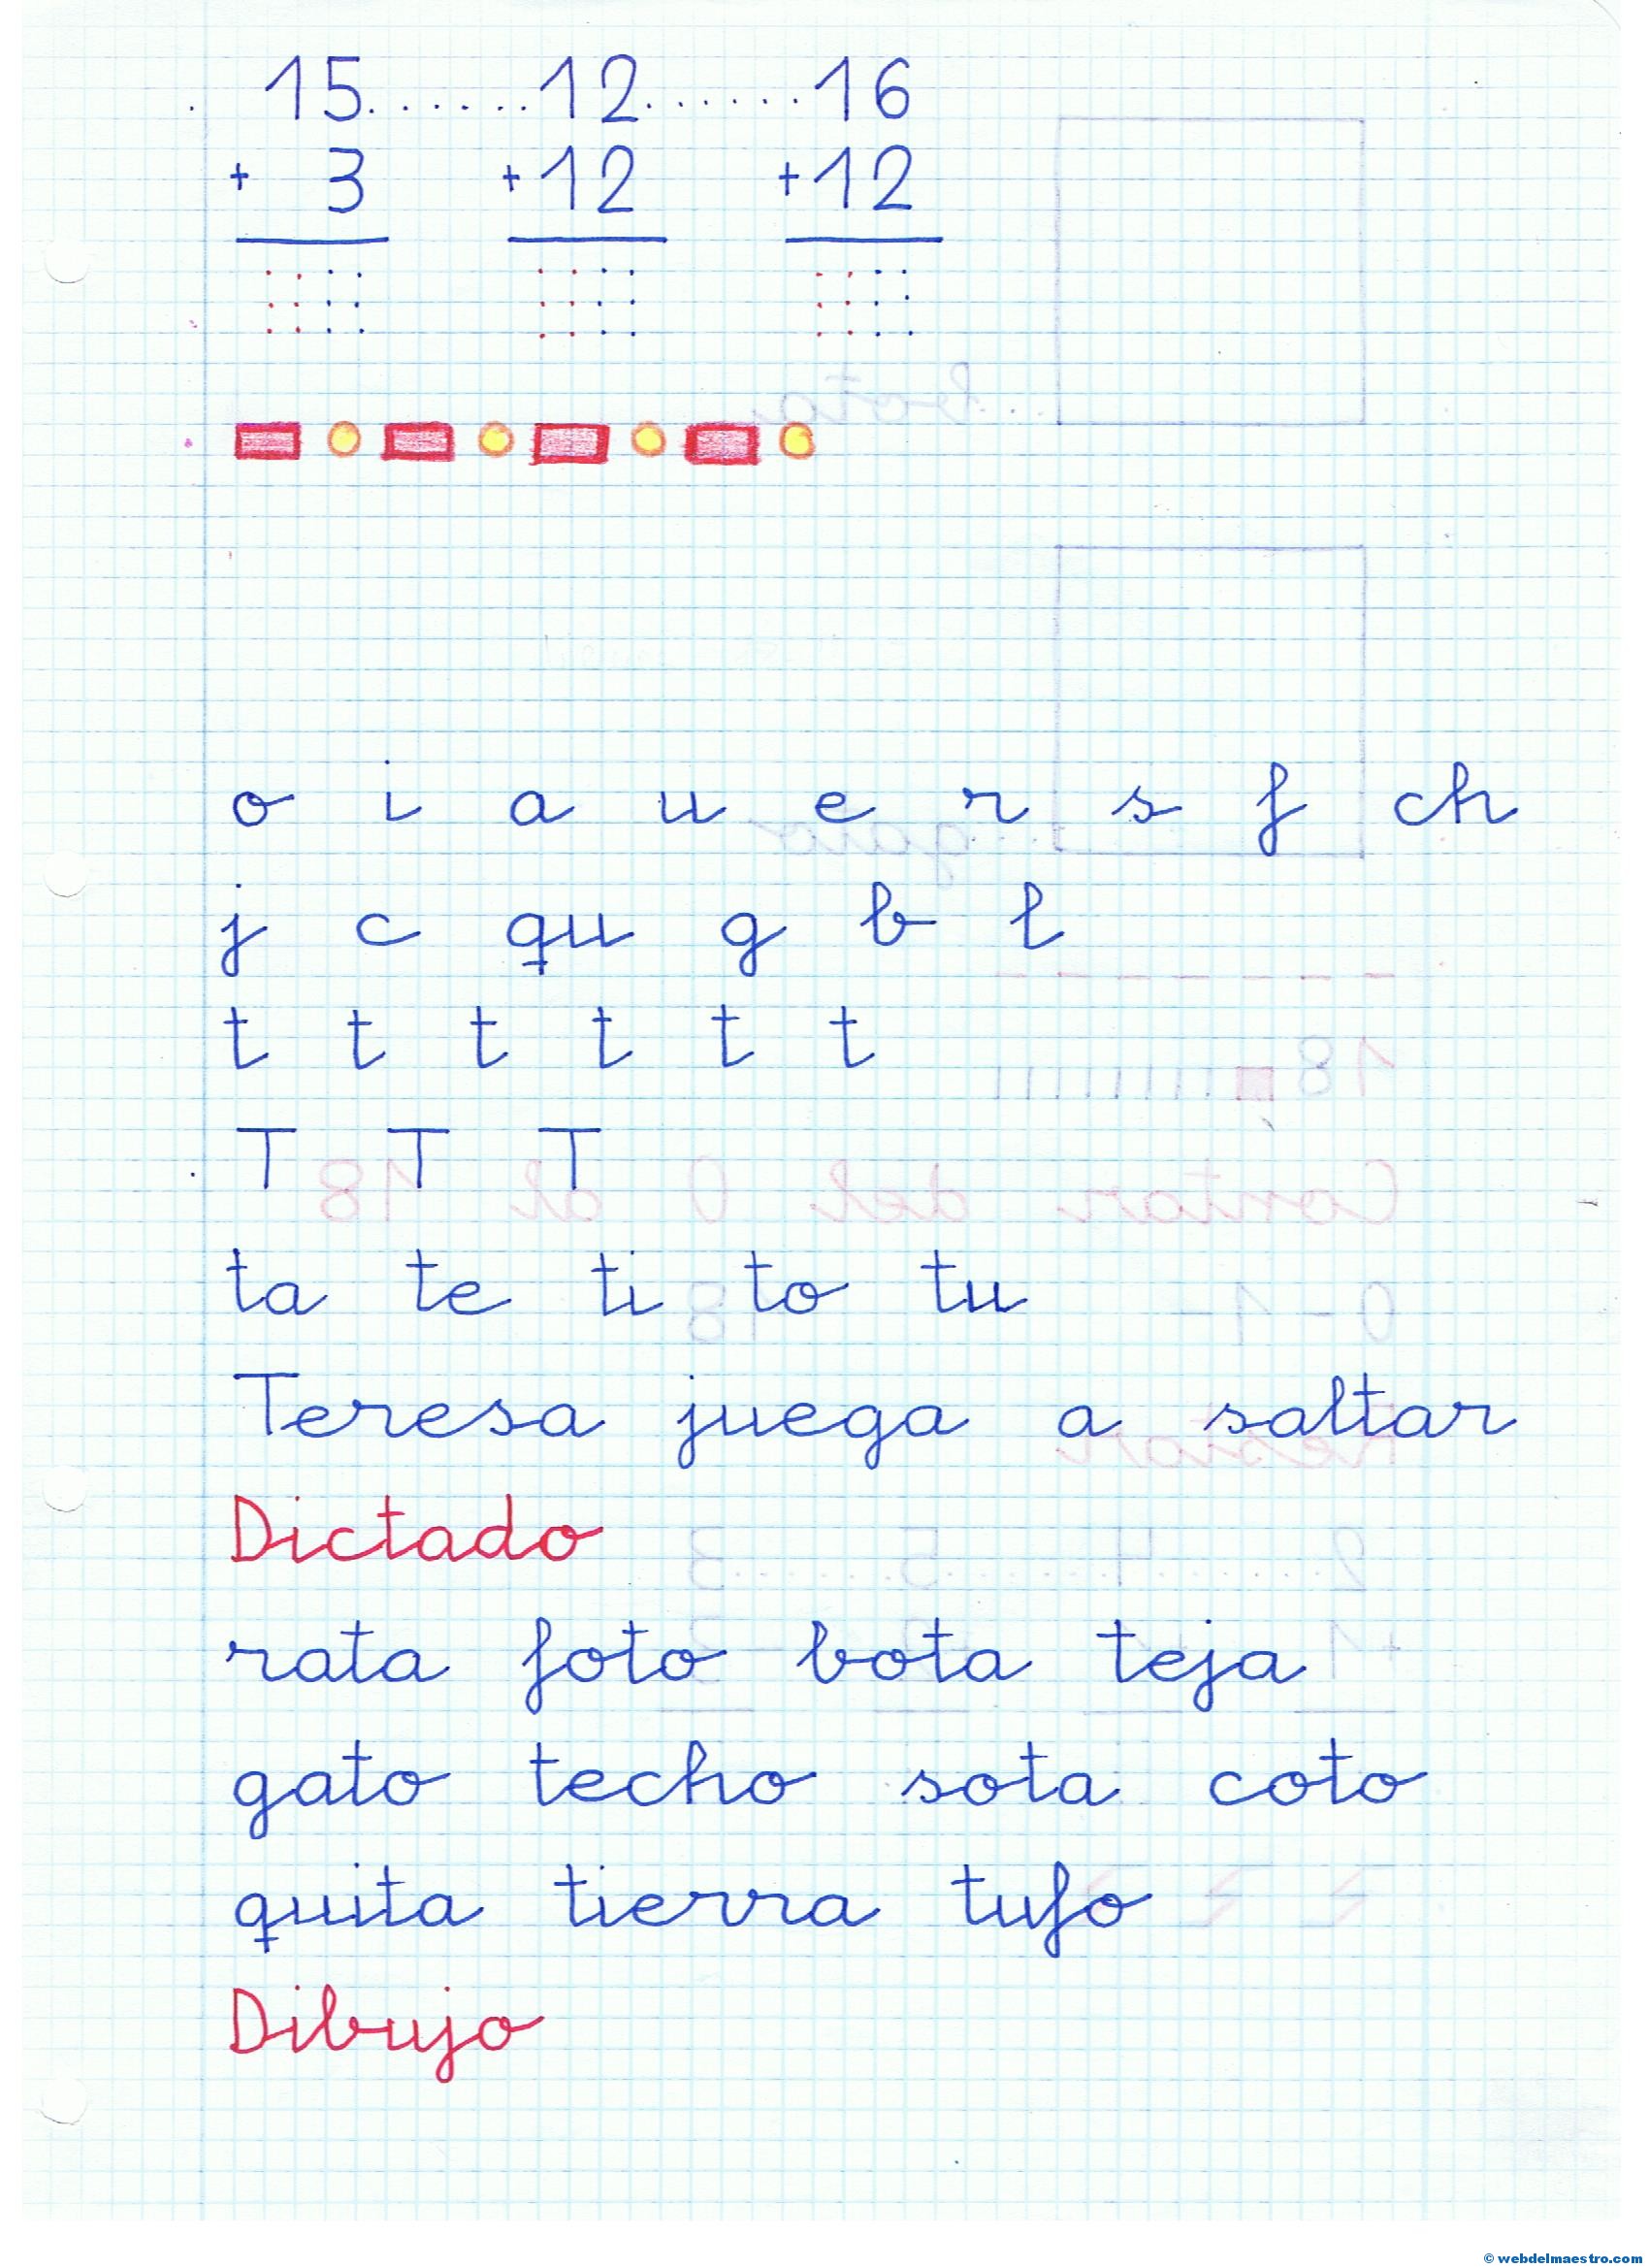 15.......12.......16
+ 3 +12 +12
o i a u e r s f ch
j c qu g b l
t t t t t t
T T T
ta te ti to tu
Teresa juega a saltar
Dictado
rata foto bota teja
gato techo sota coto
quita tierra tufo
Dibujo
© webdelmaestro.com